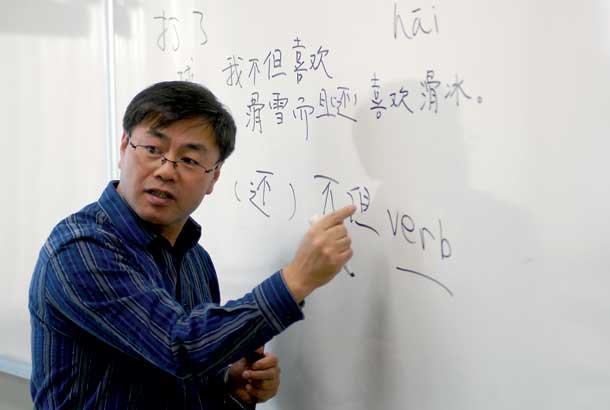 打了
hāi
我不但喜欢
滑雪而且还喜欢滑冰。
(还) 不但 verb